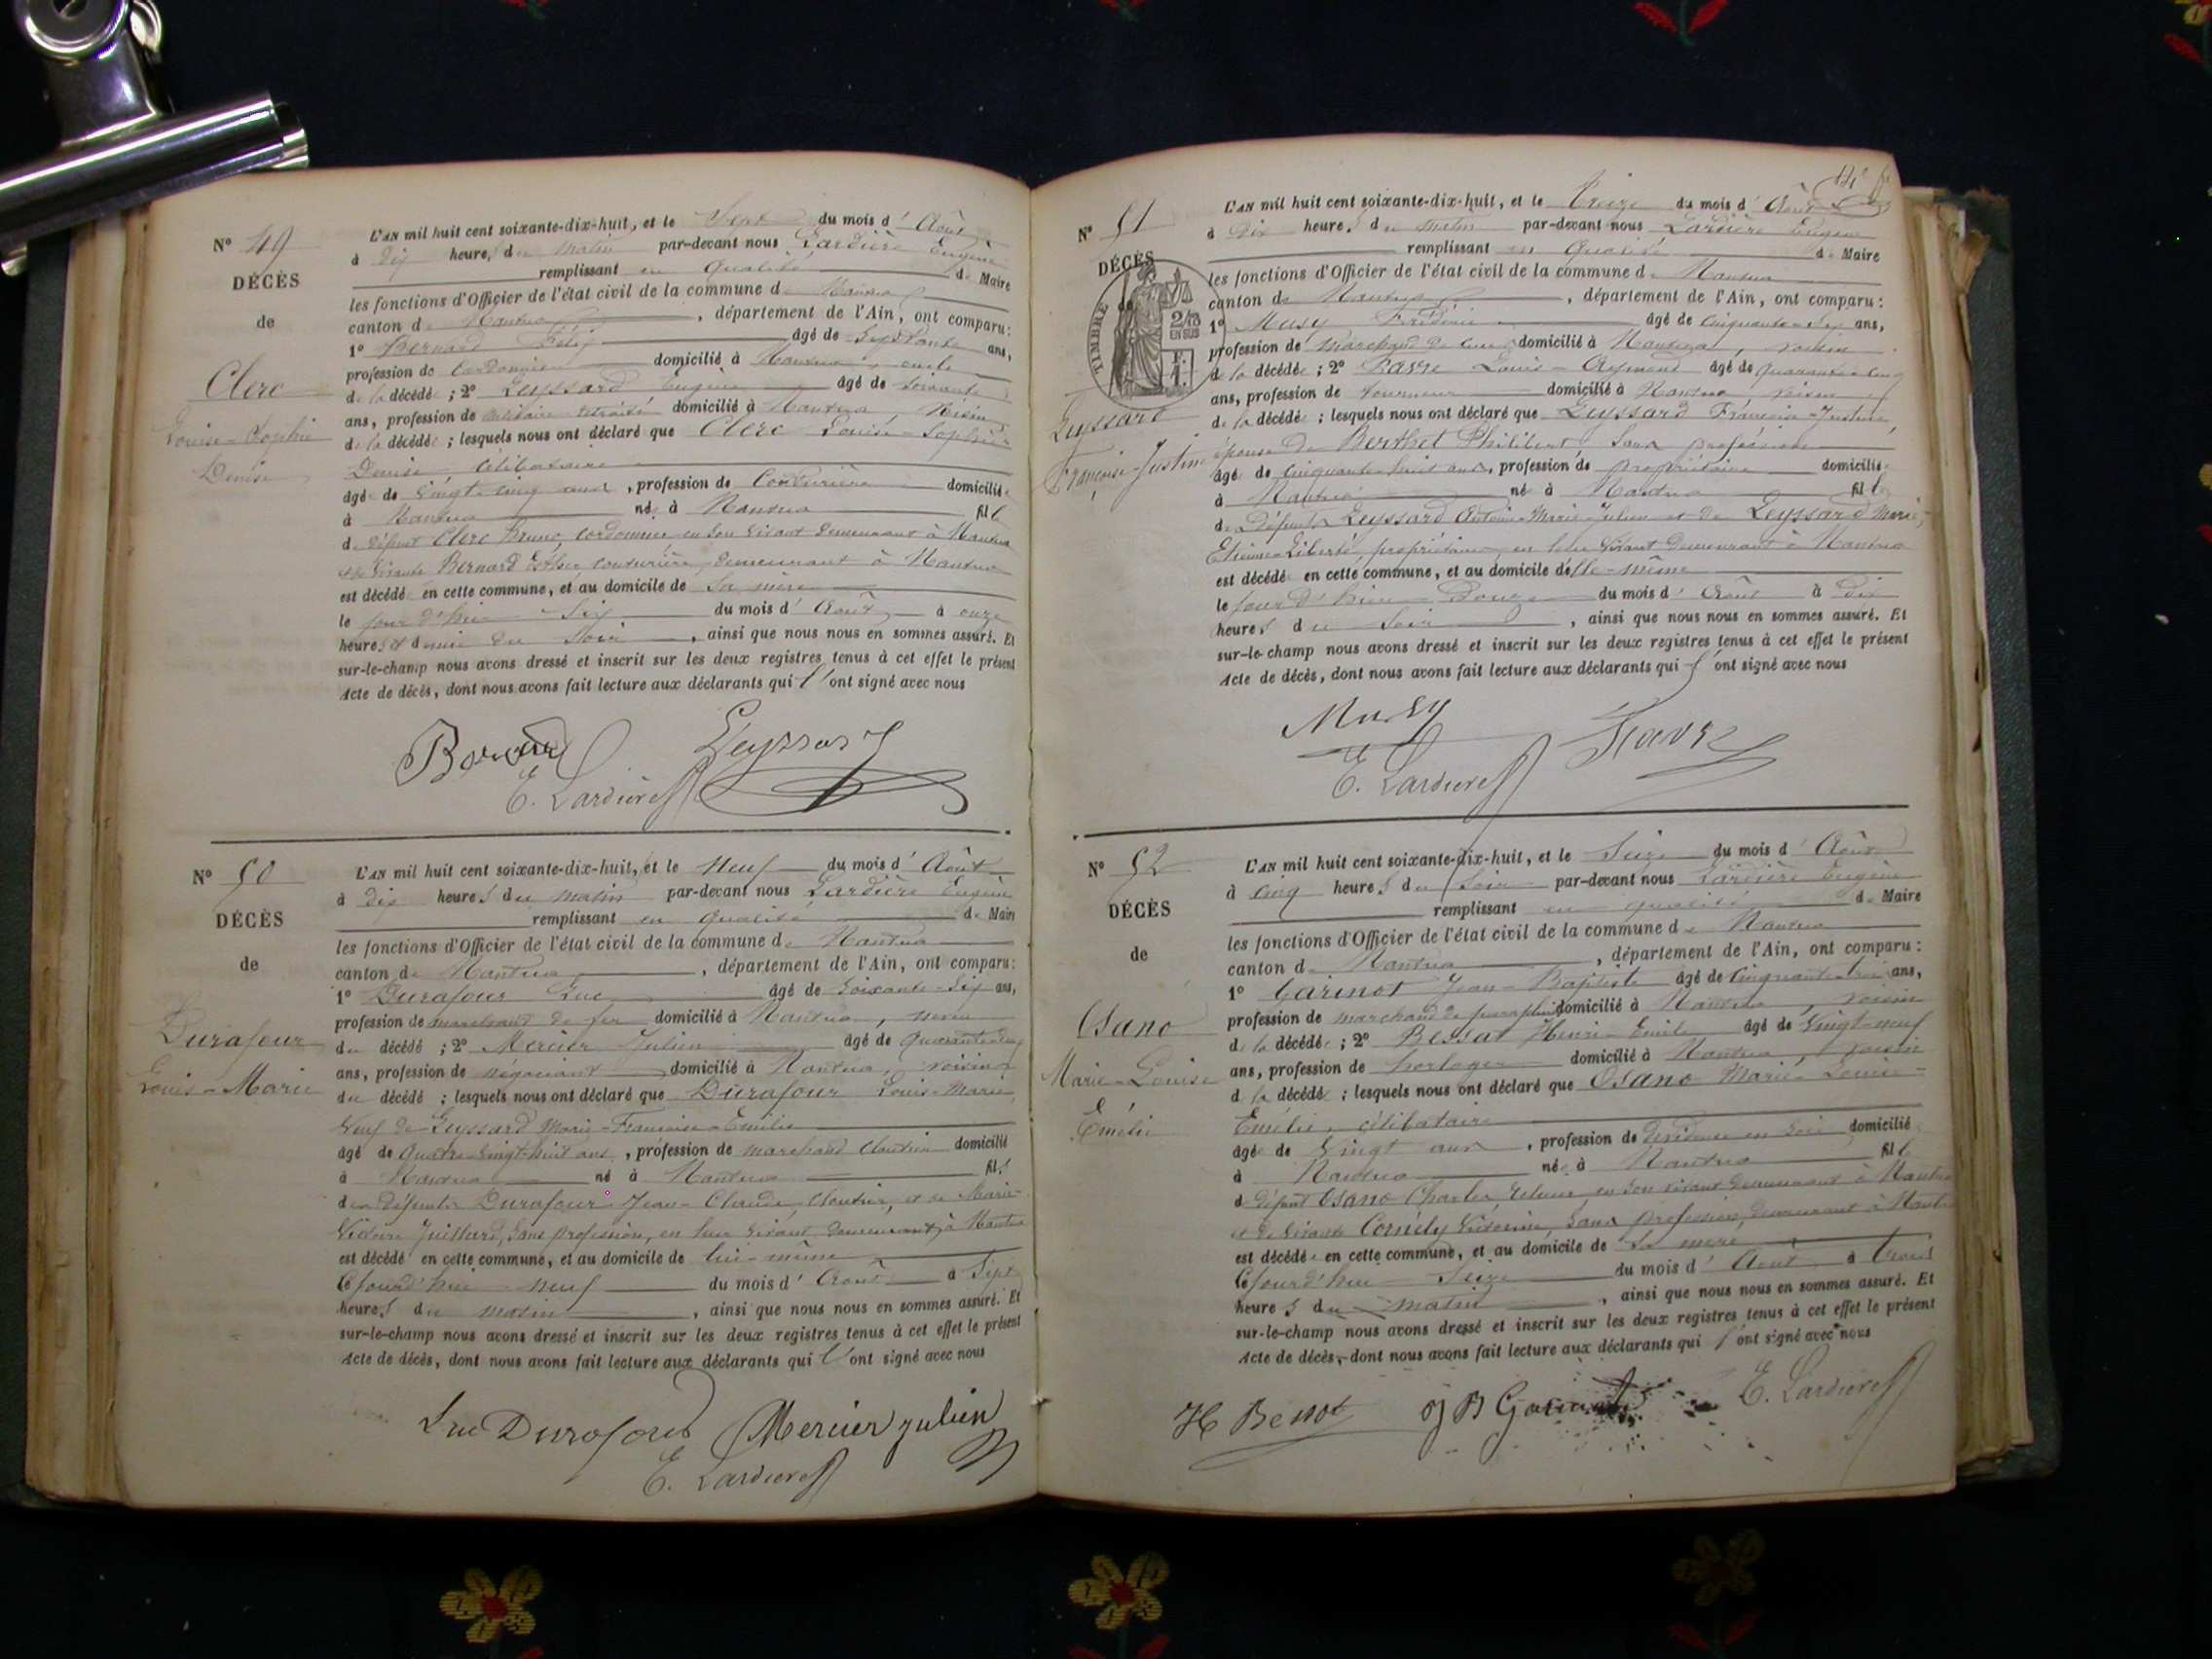 N° 49
DÉCÈS
de
Clerc
Louise-Sophie
Denise
L'AN mil huit cent soixante-dix-huit, et le Sept du mois d' Août
à dix heures du matin par-devant nous Lardière Eugène
remplissant en qualité de Maire
les fonctions d'Officier de l'état civil de la commune de Nantua
canton de Nantua, département de l'Ain, ont comparu :
1° Bernard Félix âgé de Soixante ans,
profession de Cordonnier domicilié à Nantua, oncle
de la décédée ; 2° Leyssard Eugène âgé de soixante
ans, profession de militaire retraité domicilié à Nantua, voisin
de la décédée ; lesquels nous ont déclaré que Clerc Louise-Sophie
Denise, célibataire
âgée de vingt-cinq ans, profession de Couturière domiciliée
à Nantua née à Nantua fille
de défunt Clerc Bruno, cordonnier en son vivant demeurant à Nantua
et de vivante Bernard Esther couturière, demeurant à Nantua
est décédée en cette commune, et au domicile de sa mère
le jour d'hier Six du mois d' Août à onze
heures et demie du Soir, ainsi que nous nous en sommes assuré. Et
sur-le-champ nous avons dressé et inscrit sur les deux registres tenus à cet effet le présent
Acte de décès, dont nous avons fait lecture aux déclarants qui l'ont signé avec nous
Bernard Leyssard
E. Lardière
N° 50
DÉCÈS
de
Durafour
Louis-Marie
L'AN mil huit cent soixante-dix-huit, et le Neuf du mois d' Août
à dix heures du matin par-devant nous Lardière Eugène
remplissant en qualité de Maire
les fonctions d'Officier de l'état civil de la commune de Nantua
canton de Nantua, département de l'Ain, ont comparu :
1° Durafour Luc âgé de Soixante-Six ans,
profession de marchand de fer domicilié à Nantua, neveu
du décédé ; 2° Mercier Julien âgé de quarante
ans, profession de négociant domicilié à Nantua, voisin
du décédé ; lesquels nous ont déclaré que Durafour Louis-Marie,
Veuf de Leyssard Marie-Françoise-Emilie
âgé de Quatre-vingt-huit ans, profession de marchand cloutier domicilié
à Nantua né à Nantua fils
des défunts Durafour Jean-Claude, cloutier, et de Marie-
Victoire Juillard, sans profession, en leur vivant demeurant à Nantua
est décédé en cette commune, et au domicile de lui-même
cejourd'hui neuf du mois d' Août à Sept
heures du matin, ainsi que nous nous en sommes assuré. Et
sur-le-champ nous avons dressé et inscrit sur les deux registres tenus à cet effet le présent
Acte de décès, dont nous avons fait lecture aux déclarants qui l'ont signé avec nous
Luc Durafour Mercier Julien
E. Lardière
N° 51
DÉCÈS
de
TIMBRE
2/10
EN SUS
Leyssard
Françoise-Justine
L'AN mil huit cent soixante-dix-huit, et le treize du mois d' Août
à Dix heures du matin par-devant nous Lardière Eugène
remplissant en qualité de Maire
les fonctions d'Officier de l'état civil de la commune de Nantua
canton de Nantua, département de l'Ain, ont comparu :
1° Musy Frédéric âgé de cinquante-six ans,
profession de Marchand de cuir domicilié à Nantua, voisin
de la décédée ; 2° Favre Louis-Aymond âgé de quarante-cinq
ans, profession de tourneur domicilié à Nantua voisin
de la décédée ; lesquels nous ont déclaré que Leyssard Françoise-Justine,
épouse de Berthet Philibert, sans profession
âgée de cinquante-huit ans, profession de propriétaire domiciliée
à Nantua née à Nantua fille
de défunts Leyssard Antoine-Marie-Julien et de Leyssard Marie-
Etienne-Liberté, propriétaires, en leur vivant demeurant à Nantua
est décédée en cette commune, et au domicile d'elle-même
le jour d'hier Douze du mois d' Août à Dix
heures du Soir, ainsi que nous nous en sommes assuré. Et
sur-le-champ nous avons dressé et inscrit sur les deux registres tenus à cet effet le présent
Acte de décès, dont nous avons fait lecture aux déclarants qui l'ont signé avec nous
Musy Favre
E. Lardière
N° 52
DÉCÈS
de
Osano
Marie-Louise
Emélie
L'AN mil huit cent soixante-dix-huit, et le Seize du mois d' Août
à cinq heures du Soir par-devant nous Lardière Eugène
remplissant en qualité de Maire
les fonctions d'Officier de l'état civil de la commune de Nantua
canton de Nantua, département de l'Ain, ont comparu :
1° Garinot Jean-Baptiste âgé de Cinquante-trois ans,
profession de marchand de parapluies domicilié à Nantua, voisin
de la décédée ; 2° Bessat Henri-Emile âgé de Vingt-neuf
ans, profession de horloger domicilié à Nantua, voisin
de la décédée ; lesquels nous ont déclaré que Osano Marie-Louise-
Emélie, célibataire
âgée de Vingt ans, profession de dévideuse en soie domiciliée
à Nantua née à Nantua fille
de défunt Osano Charles, en son vivant demeurant à Nantua
et de vivante Cornély Victorine, sans profession, demeurant à Nantua
est décédée en cette commune, et au domicile de sa mère
cejourd'hui Seize du mois d' Août à trois
heures du matin, ainsi que nous nous en sommes assuré. Et
sur-le-champ nous avons dressé et inscrit sur les deux registres tenus à cet effet le présent
Acte de décès, dont nous avons fait lecture aux déclarants qui l'ont signé avec nous
H Bessat J B Garinot E. Lardière